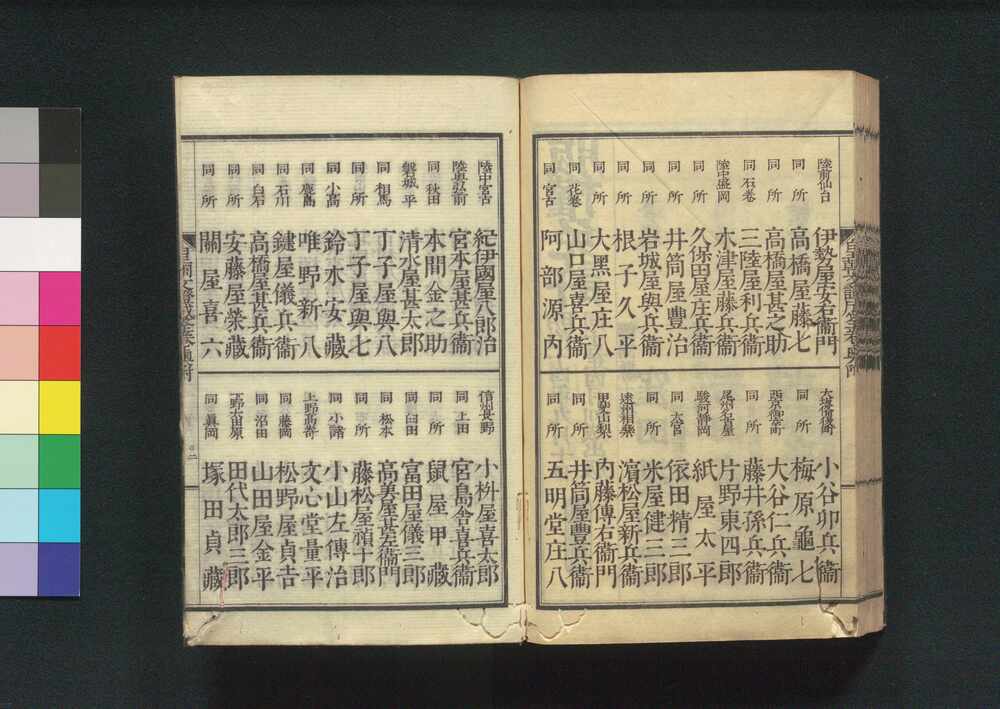 陸前仙台 伊勢屋安右衞門
同所 高橋屋藤七
同所 高橋屋甚之助
同石巻 三陸屋利兵衞
陸中盛岡 木津屋藤兵衞
同所 久保田屋庄兵衞
同所 井筒屋豊治
同所 岩城屋與兵衞
同所 根子久平
同所 大黑屋庄八
同花巻 山口屋喜兵衞
同宮古 阿部源內
小谷卯兵衞
同所 梅原龜七
大谷仁兵衞
同所 藤井孫兵衞
尾州名古屋 片野東四郎
駿河静岡 紙屋太平
同 依田精三郎
同所 米屋健三郎
遠州相良 濵松屋新兵衞
甲州山梨 內藤傳右衞門
同所 井筒屋豊兵衞
同所 五明堂庄八
陸中宮古 紀伊國屋八郎治
陸奥弘前 宮本屋甚兵衞
同秋田 本間金之助
磐城平 清水屋甚太郎
同相馬 丁子屋與八
同所 丁子屋與七
同小高 鈴木安藏
同鹿島 唯野新八
同石川 鍵屋儀兵衞
同白石 高橋屋甚兵衞
同所 安藤屋榮藏
同所 關屋喜六
信州長野 小桝屋喜太郎
同上田 宮島舎喜兵衞
同所 鼠屋甲藏
同臼田 富田屋儀三郎
同松本 高美屋甚左衞門
同所 藤松屋禎十郎
同小諸 小山左傳治
上野高崎 文心堂量平
同藤岡 松野屋貞吉
同沼田 山田屋金平
下野大田原 田代太郎三郎
同眞岡 塚田貞藏